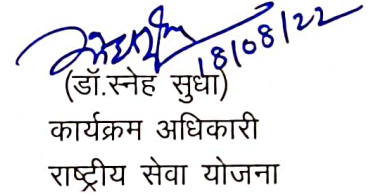 18/08/22
(डॉ.स्नेह सुधा)
कार्यक्रम अधिकारी
राष्ट्रीय सेवा योजना